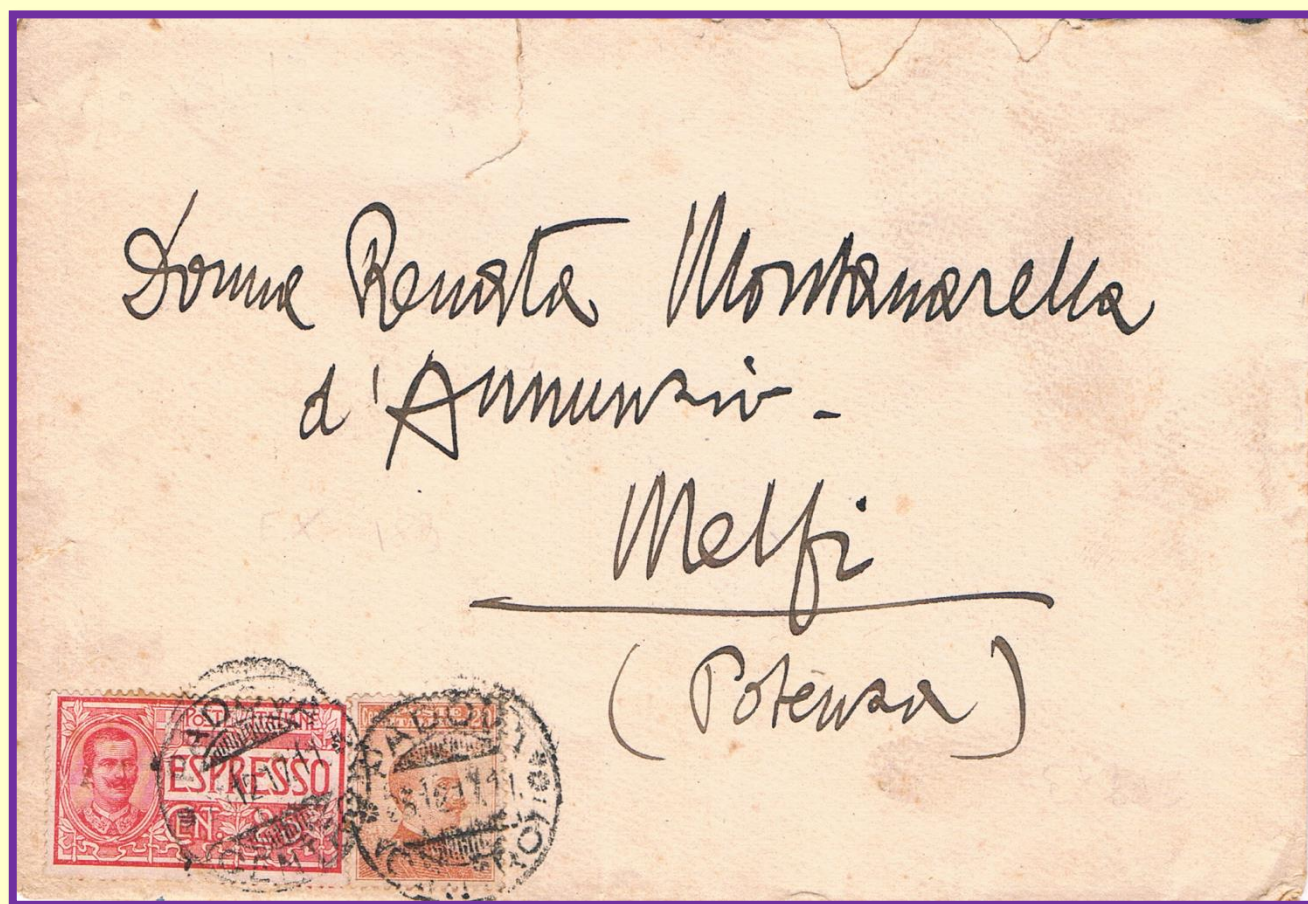 Donna Renata Montanarella
d'Annunzio -
Melfi
(Potenza)
POSTE ITALIANE
ESPRESSO
CEN.